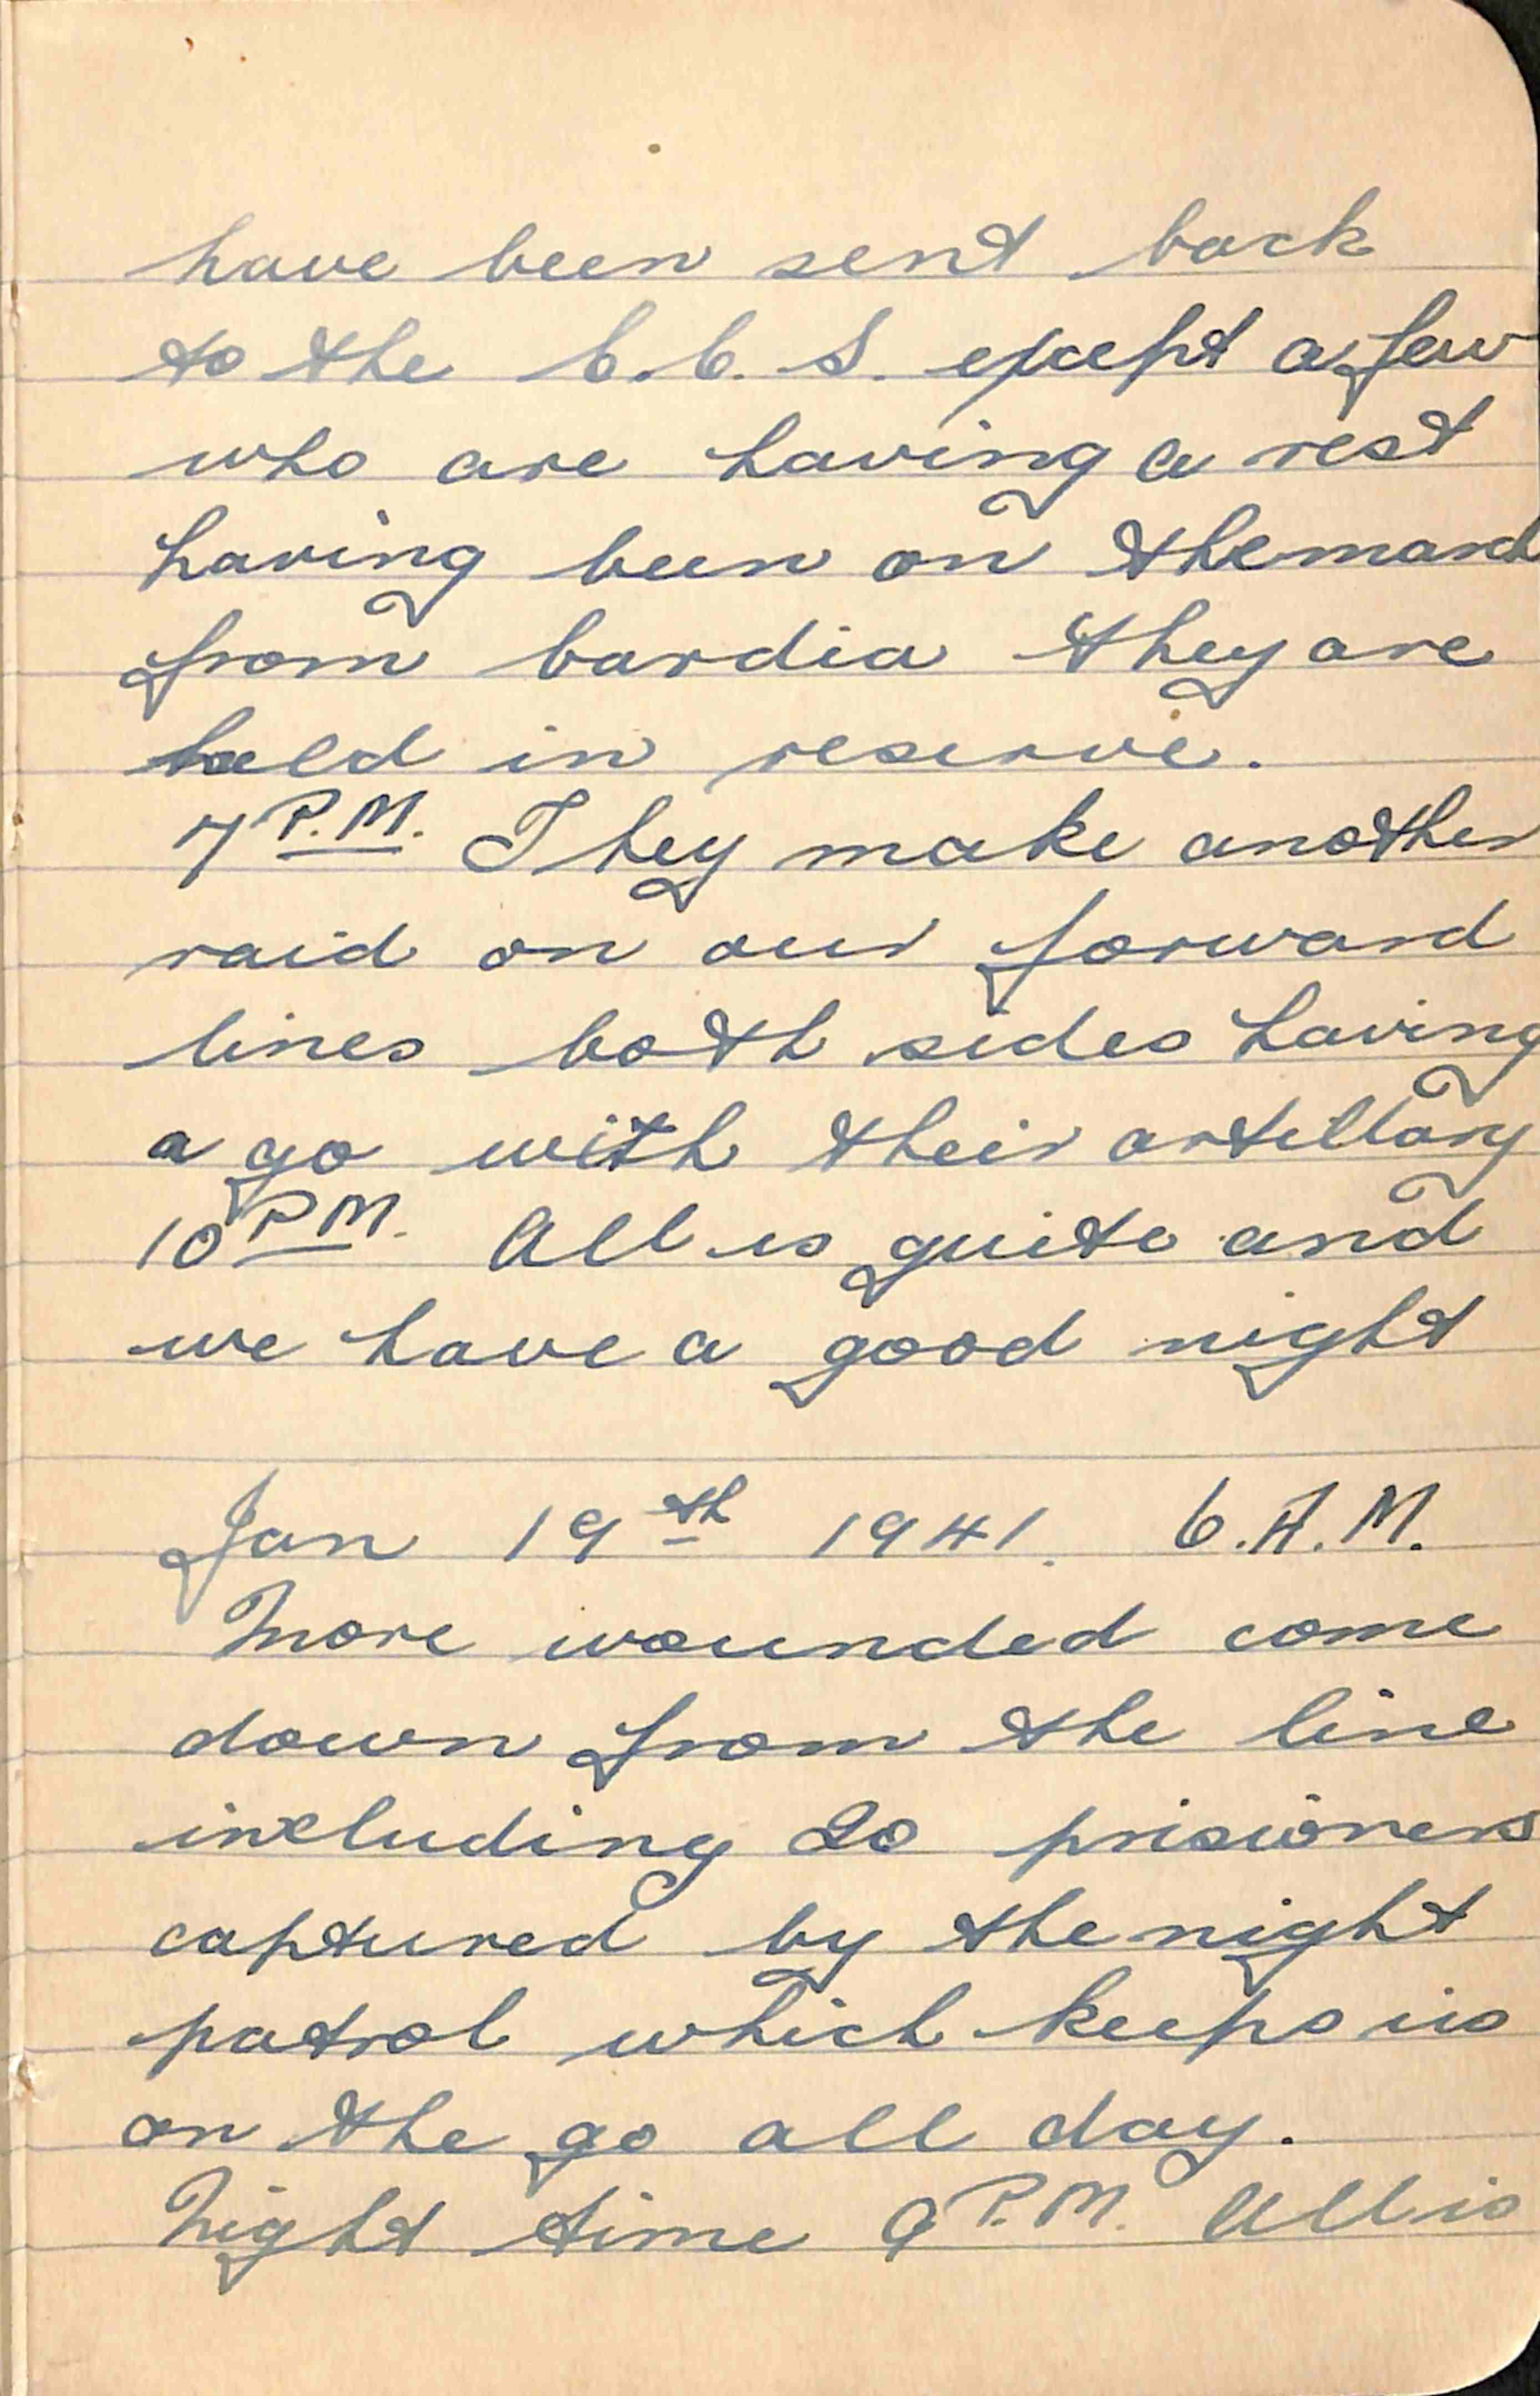 have been sent back
to the C.C.S. except a few
who are having a rest
having been on the march
from bardia they are
held in reserve.
7 P.M. They make another
raid on our forward
lines both sides having
a go with their artillary
10 P.M. All is quite and
we have a good night
Jan 19th 1941. 6.A.M.
More wounded come
down from the line
including 20 prisioners
captured by the night
patrol which keeps us
on the go all day.
Night time 9 P.M. All is